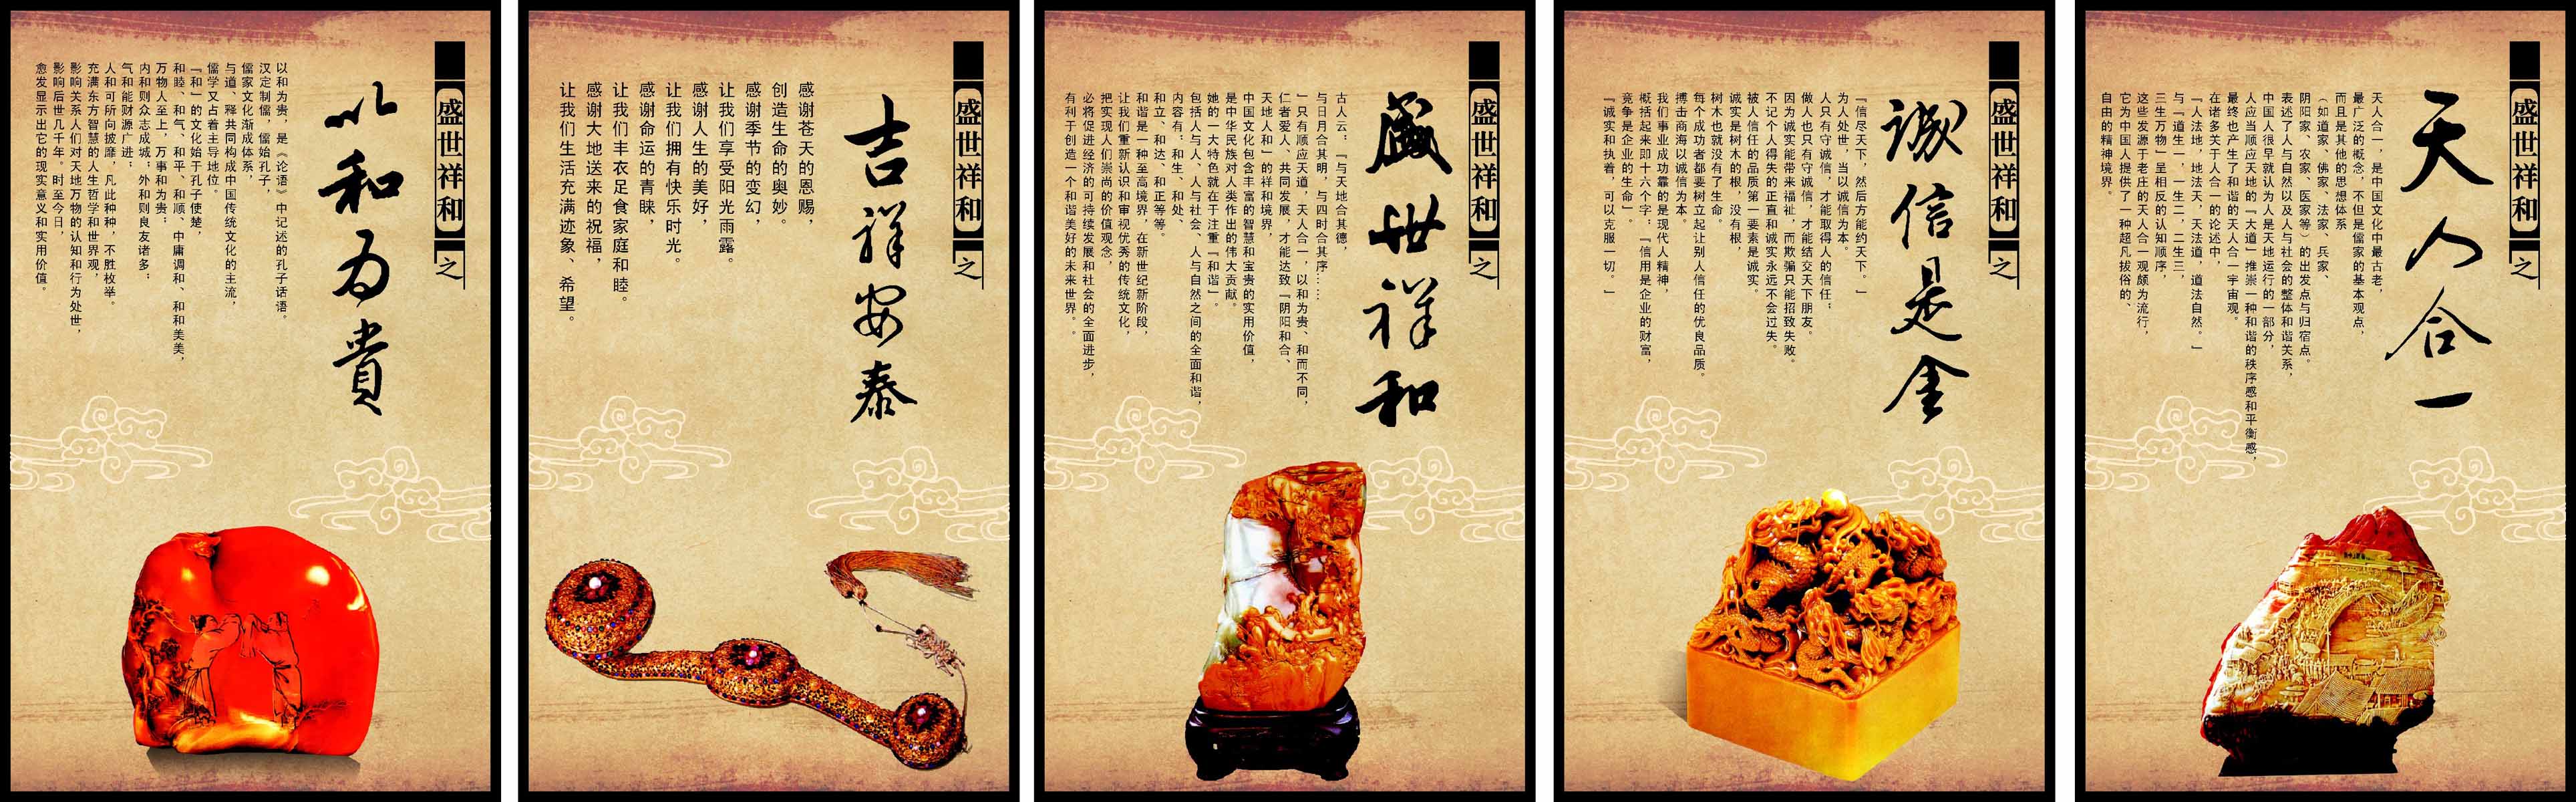 盛世祥和之
以和为貴
以和为贵，是《论语》中记述的孔子话语。
汉定制儒，儒始孔子，
儒家文化渐成体系，
与道、释共同构成中国传统文化的主流，
儒学又占着主导地位。
『和』的文化始于孔子使楚，
和睦、和气、和平、和顺、中庸调和、和和美美，
万物人至上，万事和为贵：
内和则众志成城，外和则良友诸多；
气和能财源广进；
人和可所向披靡，凡此种种，不胜枚举。
充满东方智慧的人生哲学和世界观，
影响关系人们对天地万物的认知和行为处世，
影响后世几千年。时至今日，
愈发显示出它的现实意义和实用价值。
盛世祥和之
吉祥安泰
感谢苍天的恩赐，
创造生命的奥妙。
感谢季节的变幻，
让我们享受阳光雨露。
感谢人生的美好，
让我们拥有快乐时光。
感谢命运的青睐，
让我们丰衣足食家庭和睦。
感谢大地送来的祝福，
让我们生活充满迹象、希望。
盛世祥和之
盛世祥和
古人云：『与天地合其德，
与日月合其明，与四时合其序……
』只有顺应天道，天人合一，以和为贵、和而不同，
仁者爱人、共同发展，才能达致『阴阳和合、
天地人和』的祥和境界，
中国文化包含丰富的智慧和宝贵的实用价值，
是中华民族对人类作出的伟大贡献。
她的一大特色就在于注重『和谐』。
包括人与人、人与社会、人与自然之间的全面和谐，
内容有：和生、和处、
和立、和达、和正等等。
和谐是一种至高境界，在新世纪新阶段，
让我们重新认识和审视优秀的传统文化，
把实现人们崇尚的价值观念，
必将促进经济的可持续发展和社会的全面进步，
有利于创造一个和谐美好的未来世界。。
盛世祥和之
诚信是金
『信尽天下，然后方能约天下。』
为人处世，当以诚信为本。
人只有守诚信，才能取得人的信任；
做人也只有守诚信，才能结交天下朋友。
因为诚实能带来福祉，而欺骗只能招致失败。
不记个人得失的正直和诚实永远不会过失。
被人信任的品质第一要素是诚实。
诚实是树木的根，没有根，
树木也就没有了生命。
每个成功者都要树立起让别人信任的优良品质。
搏击商海以诚信为本。
我们事业成功靠的是现代人精神，
概括起来即十六个字：『信用是企业的财富，
竞争是企业的生命』。
『诚实和执着，可以克服一切。』
盛世祥和之
天人合一
天人合一，是中国文化中最古老，
最广泛的概念，不但是儒家的基本观点，
而且是其他的思想体系
（如道家、佛家、法家、兵家、
阴阳家、农家、医家等）的出发点与归宿点。
表述了人与自然以及人与社会的整体和谐关系，
中国人很早就认为人是天地运行的一部分，
人应当顺应天地的『大道』推崇一种和谐的秩序感和平衡感，
最终也产生了和谐的天人合一宇宙观。
在诸多关于人合一的论述中，
『人法地，地法天，天法道，道法自然。』
与『道生一，一生二，二生三，
三生万物』呈相反的认知顺序，
这些发源于老庄的天人合一观颇为流行，
它为中国人提供了一种超凡拔俗的、
自由的精神境界。